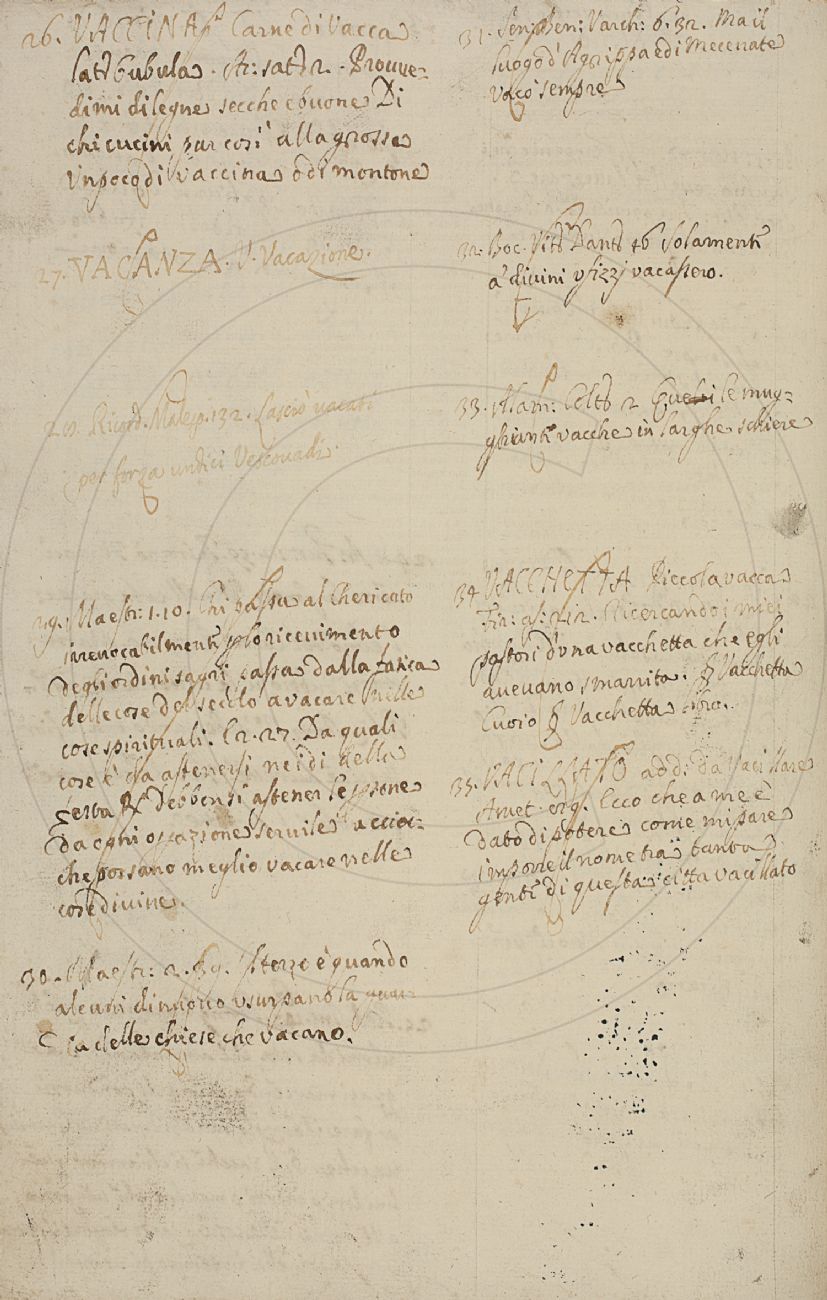 26. VACCINA. Carne di Vacca
lat. bubula. Ar: sat. 2. Provve-
dimi di legne secche e buone Di
chi cucini pur così alla grossa
Un poco di vaccina o di montone
27. VACANZA. V. Vacazione.
28. Ricord. Malesp. 132. Lasciò vacati
per forza undici Vescovadi.
29. Maestr: 1. 10. Chi passa al Chericato
irrevocabilmente p lo ricevimento
degli ordini sagri passa dalla fatica
delle cose del secolo a vacare nelle
cose spirituali. E 2. 27. Da quali
cose è da astenersi nei dì della
festa R Debbensi astener le psone
da ogni opazione servile accioc-
che possano meglio vacare nelle
cose divine.
30. Maestr: 2. Il terzo è quando
alcuni di nuovo usurpano la guar-
dia delle chiese che vacano.
31. Sen: Ben: Varch: 6. 32. Ma il
luogo d'Agrippa e di Mecenate
vacò sempre
32. Boc. Vit. Dant. 46 Solamente
a' divini ufizzj vacassero.
33. Alam: Colt. 2 le mug-
ghianti vacche in larghe schiere
34 VACCHETTA Piccola vacca
Fir: as: 212. Ricercando i miei
pastori d'una vacchetta che egli
avevano smarrita. Vacchetta
Cuoio Vacchetta libro.
35. VACILLATO add: da Vacillare
Amet. Ecco che a me è
dato di potere come mi pare
imporre il nome tra tanta
gente di questa città vacillato